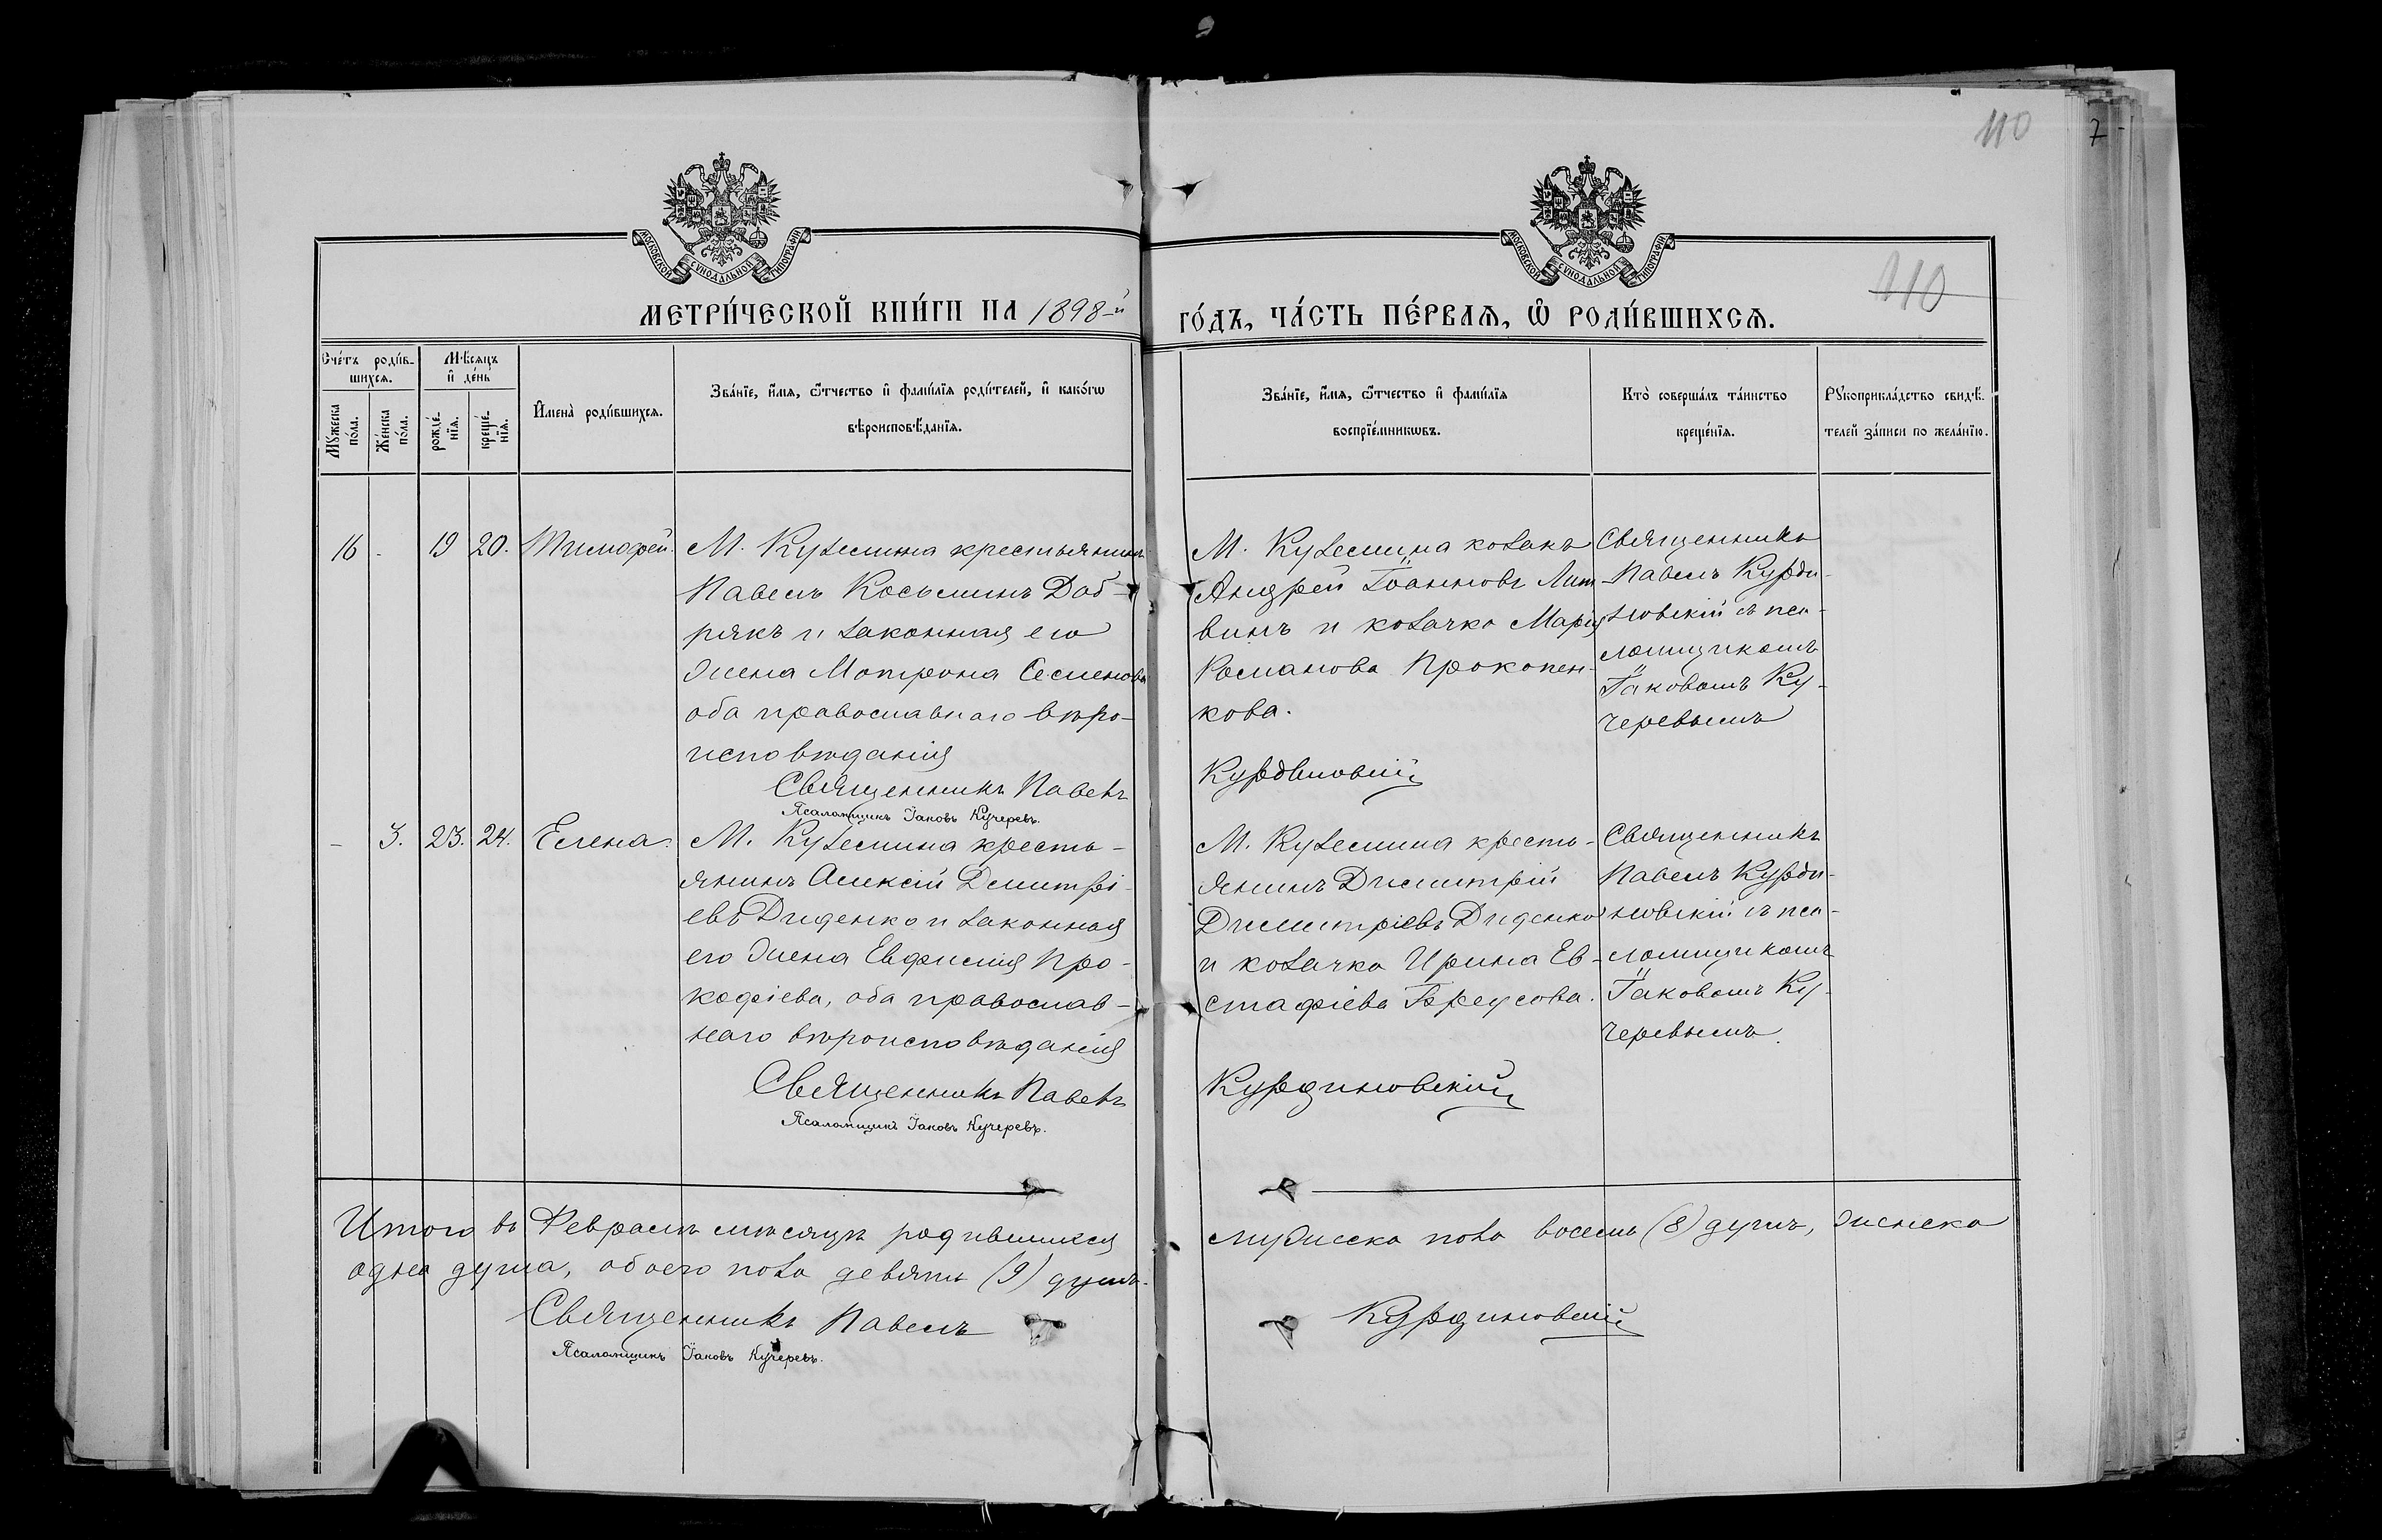 110
7
МОСКОВСКОЙ СѴНОДАЛЬНОЙ ТИПОГРАФІИ
МОСКОВСКОЙ СѴНОДАЛЬНОЙ ТИПОГРАФІИ
110
МЕТРИ́ЧЕСКОЙ КНИ́ГИ НА 1898-й
ГО́ДЪ, ЧА́СТЬ ПЕ́РВАѦ, Ѡ҆ РОДИ́ВШИХСѦ.
Сче́тъ роди́в-
шихсѧ.
Мѣ́сѧцъ
и҆ де́нь
Мꙋ́жеска
по́ла.
Же́нска
по́ла.
рожде́-
нїѧ.
креще́-
нїѧ.
И҆мена̀ роди́вшихсѧ.
Зва́нїе, и҆́мѧ, ѻ҆́тчество и҆ фами́лїѧ роди́телей, и҆ како́гѡ
вѣроисповѣ́данїѧ.
Зва́нїе, и҆́мѧ, ѻ҆́тчество и҆ фами́лїѧ
воспрїе́мникѡвъ.
Кто̀ соверша́лъ та́инство
креще́нїѧ.
Рꙋкоприкла́дство свидѣ́-
телей за́писи по жела́нїю.
16 - 19 20. Тимофей.
М. Куземина крестьянинъ
Павелъ Косьминъ Доб-
рякъ и законная его
жена Мотрона Семенова
оба православнаго вѣро-
исповѣданія
Священникъ Павелъ
Псаломщикъ Іаковъ Кучеревъ.
М. Куземина козакъ
Андрей Іоанновъ Лит
винъ и козачка Марія
Романова Прокопен-
кова.
Курдиновскій
Священникъ
Павелъ Курди-
новскій съ пса-
ломщикомъ
Іаковомъ Ку-
черевымъ
- 3. 23. 24. Елена.
М. Куземина кресть-
янинъ Алексій Дмитрі-
евъ Диденко и законная
его жена Евфимія Про-
кофіева, оба православ-
наго вѣроисповѣданія
Священникъ Павелъ
Псаломщикъ Іаковъ Кучеревъ.
М. Куземина кресть-
янинъ Димитрій
Димитріевъ Диденко
и козачка Ирина Ев-
стафіева Бреусова.
Курдиновскій
Священникъ
Павелъ Курди-
новскій съ пса-
ломщикомъ
Іаковомъ Ку-
черевымъ.
Итого въ Февралѣ мѣсяцѣ родившихся
мужеска пола восемь (8) душъ, женска
одна душа, обоего пола девять (9) душъ.
Священникъ Павелъ
Курдиновскій
Псаломщикъ Іаковъ Кучеревъ.